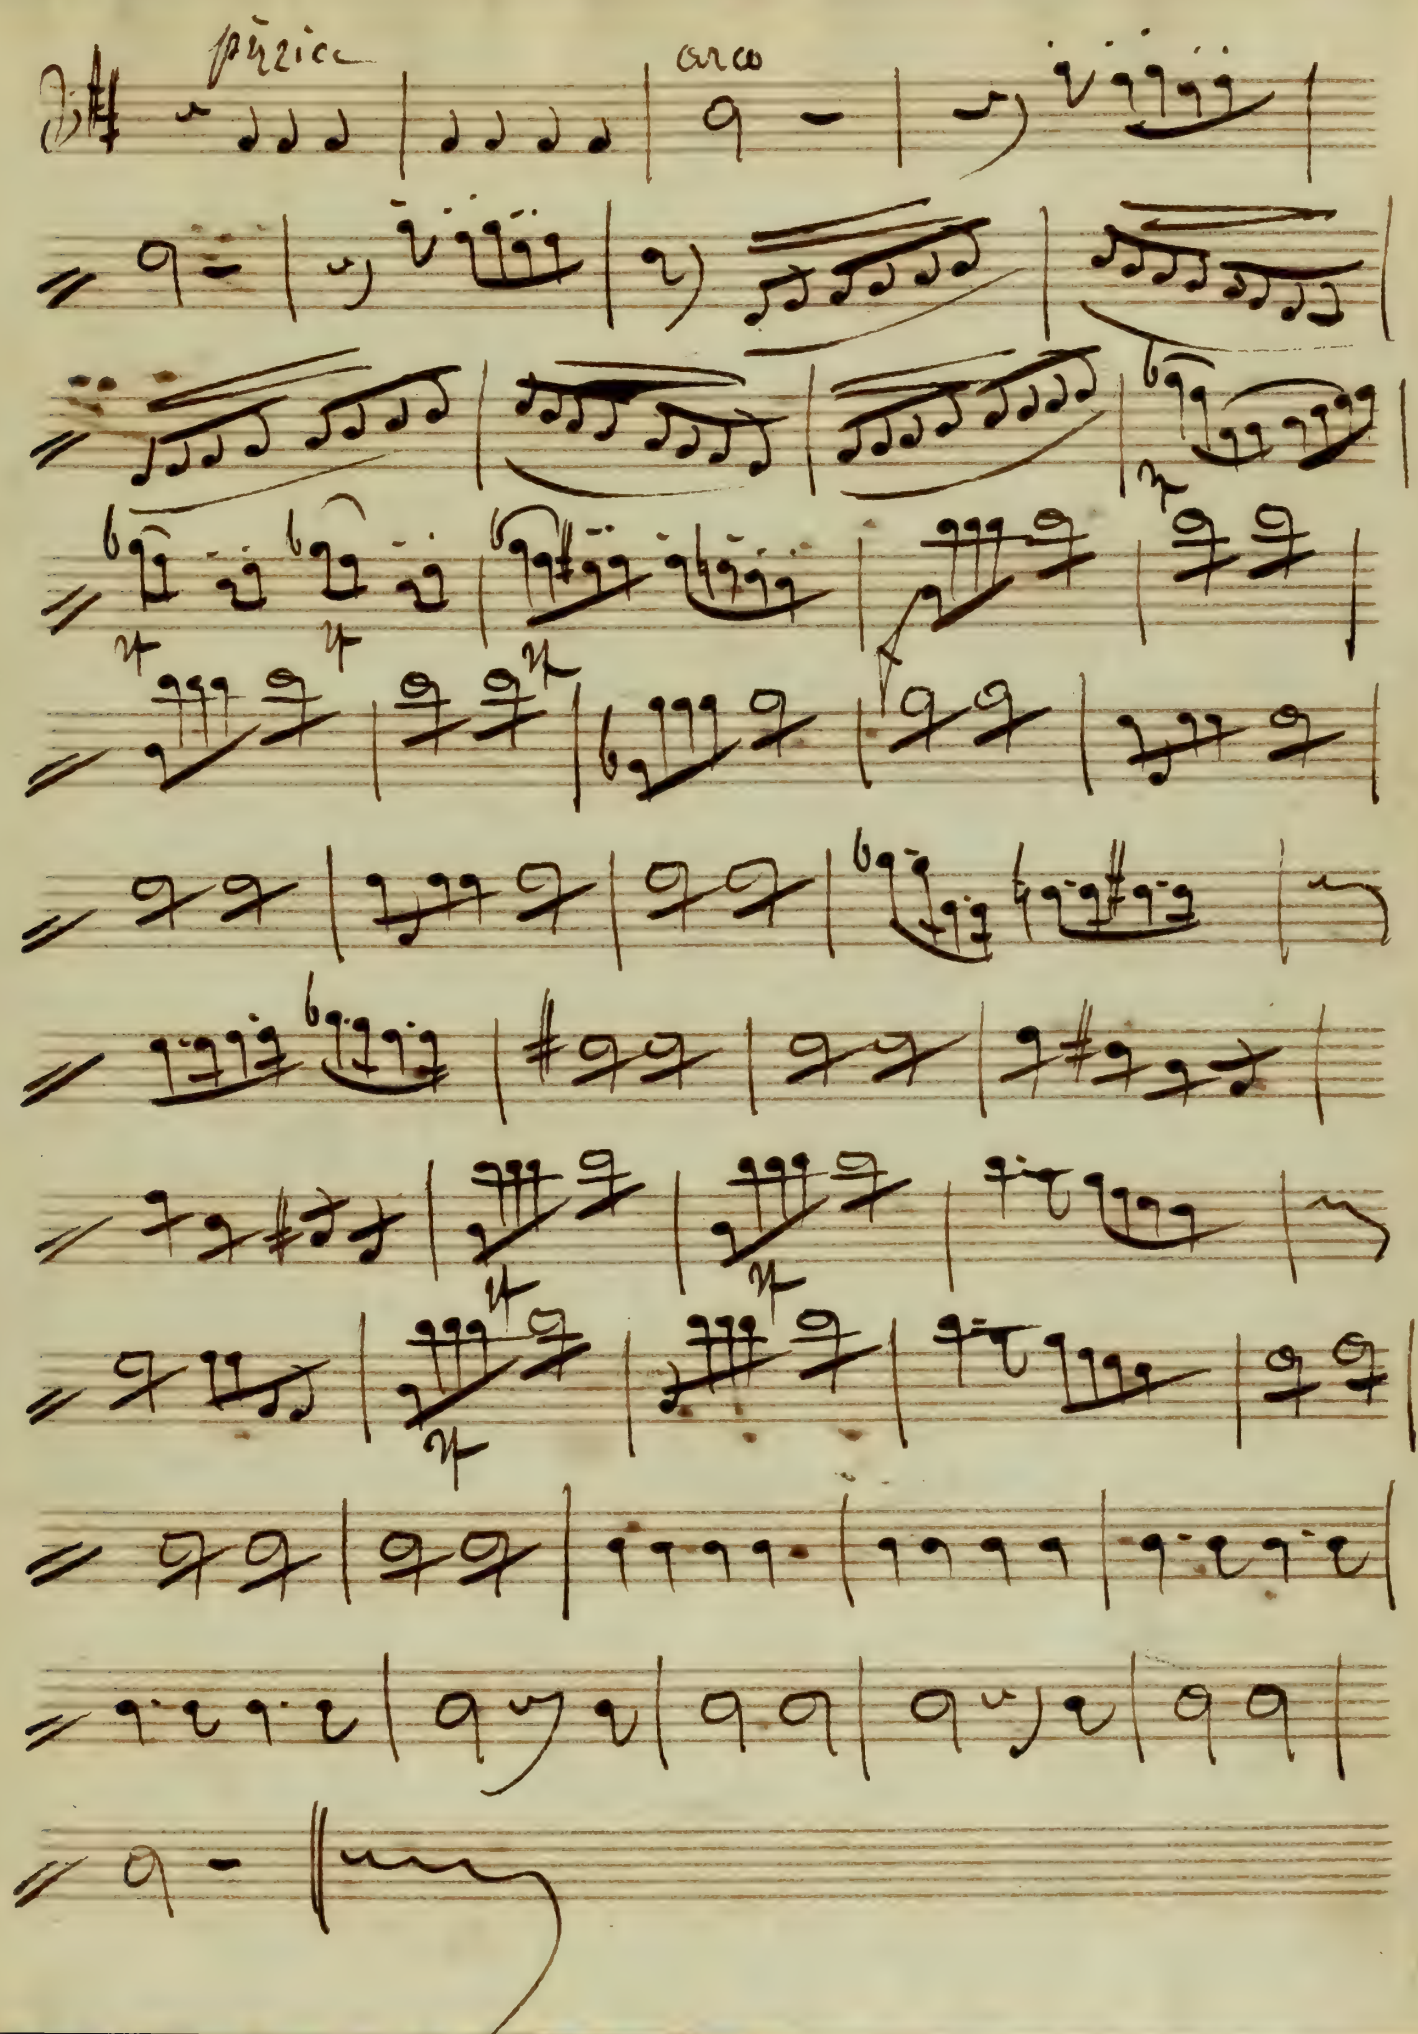 pizzic
arco